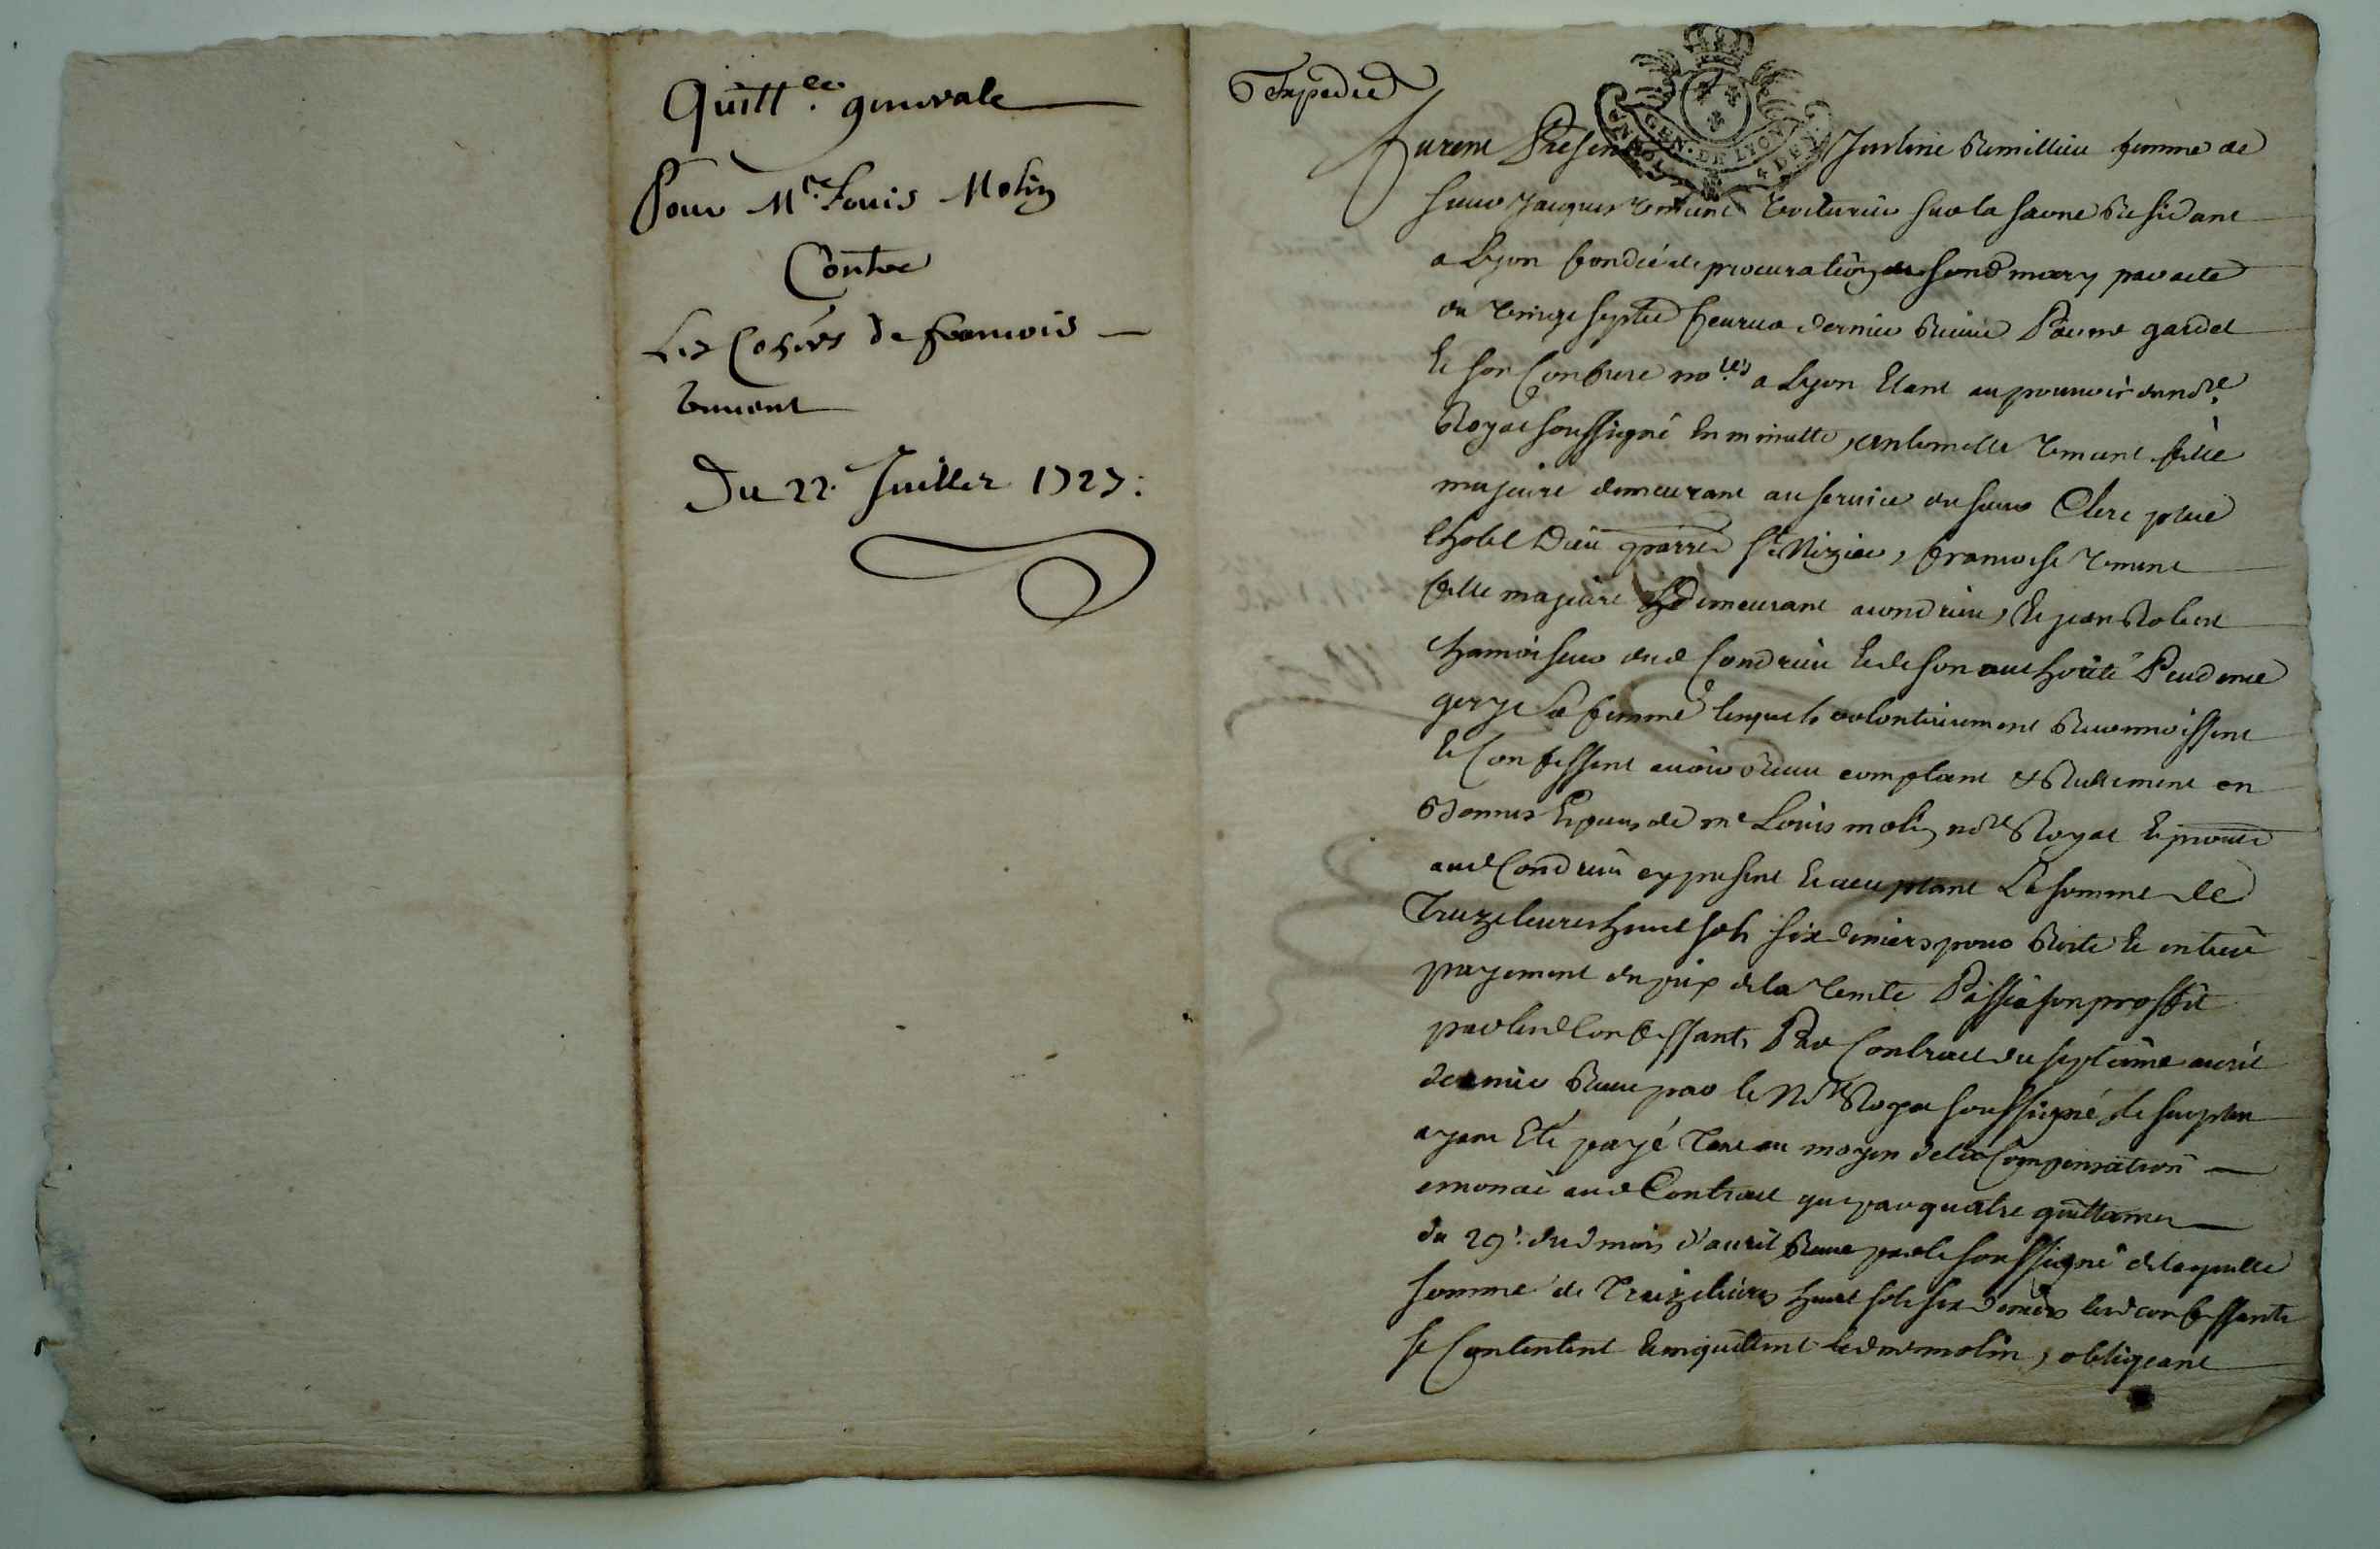 Quitt.ce generale
Pour Me. Louis Molin
Contre
Les Cohers de francois
tement
Du 22. Juillet 1727.
Expedié
GEN. DE LYON
furent Presents Remillieu femme de
sieur Jacques voiturier sur la saone Residant
a Lyon fondée de procuration de sond mary par acte
du vingt septe feuvrier dernier Receue gardel
et son Confrere nores a Lyon Etant au pouvoir du nore
Royal soussigné en minutte, fille
majeure demeurant au service du sieur Clerc place
lhotel Dieu parre St Nizier, francoise
fille majeure demeurant a Condrieu, Et jean Robert
Chamoiseur dud Condrieu et de son authorité
sa femme lesquels volontairement Reconnoissent
et Confessent avoir Receu comptant et Reellement en
deniers de me Louis molin nore Royal et
aud Condrieu cy present et acceptant La somme de
Treize livres huit sols six deniers pour Reste et entier
payement du prix de la vente Passé a son proffit
par lesd Confessants Par Contract du septieme avril
dernier Receu par le Nore Royal soussigné, le surplus
ayant Eté payé tant au moyen de la Compensation
enoncée aud Contract que par quatre quittances
du 29e. dud mois d'avril Receue par le soussigné de laquelle
somme de Treize livres huit sols six deniers lesd confessants
se Contentent et en quittent led me molin, obligeant